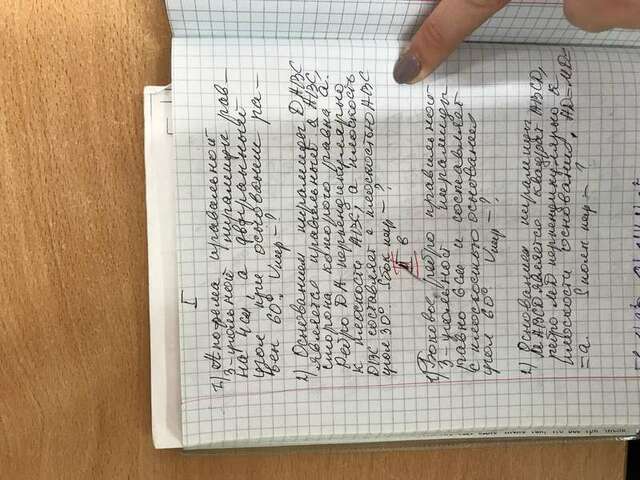 I
1) Апофема правильной
3-угольной пирамиды рав-
на 4 см, а двугранный
угол при основании ра-
вен 60°. Vпир - ?
2) Основанием пирамиды DABC
является правильный △ ABC,
сторона которого равна a.
Ребро DA перпендикулярно
к плоскости ABC, а плоскость
DBC составляет с плоскостью ABC
угол 30°. Sбок пир - ?
II в
1) Боковое ребро правильной
3-угольной пирамиды
равно 6 см и составляет
с плоскостью основания
угол 60°. Vпир - ?
2) Основанием пирамиды
MABCD является квадрат ABCD,
ребро MD перпендикулярно к
плоскости основания, AD=MD=
=a. Sполн пир - ?